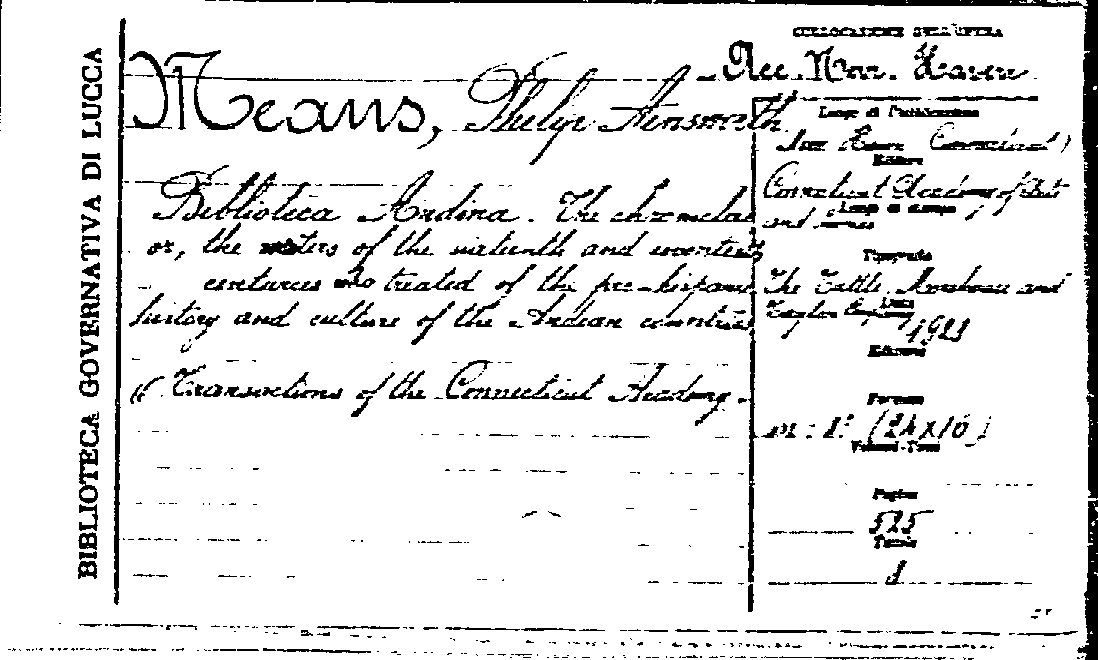 BIBLIOTECA GOVERNATIVA DI LUCCA
Means, Philip Ainsworth
Biblioteca Andina. The
or, the of the and
centuries who treated of the pre-hispanic
history and culture of the Andean countries
(Transactions of the Connecticut Academy.
COLLOCAZIONE DELL'OPERA
Acc. Haven
Luogo di Pubblicazione
New Haven
Editore
Connecticut Academy of Arts
Luogo di stampa
and
Tipografia
The Tuttle, Morehouse and
Data
Taylor Company
Edizione
Formato
in: 8°
Volumi-Tomi
Pagine
525
Tavole
1